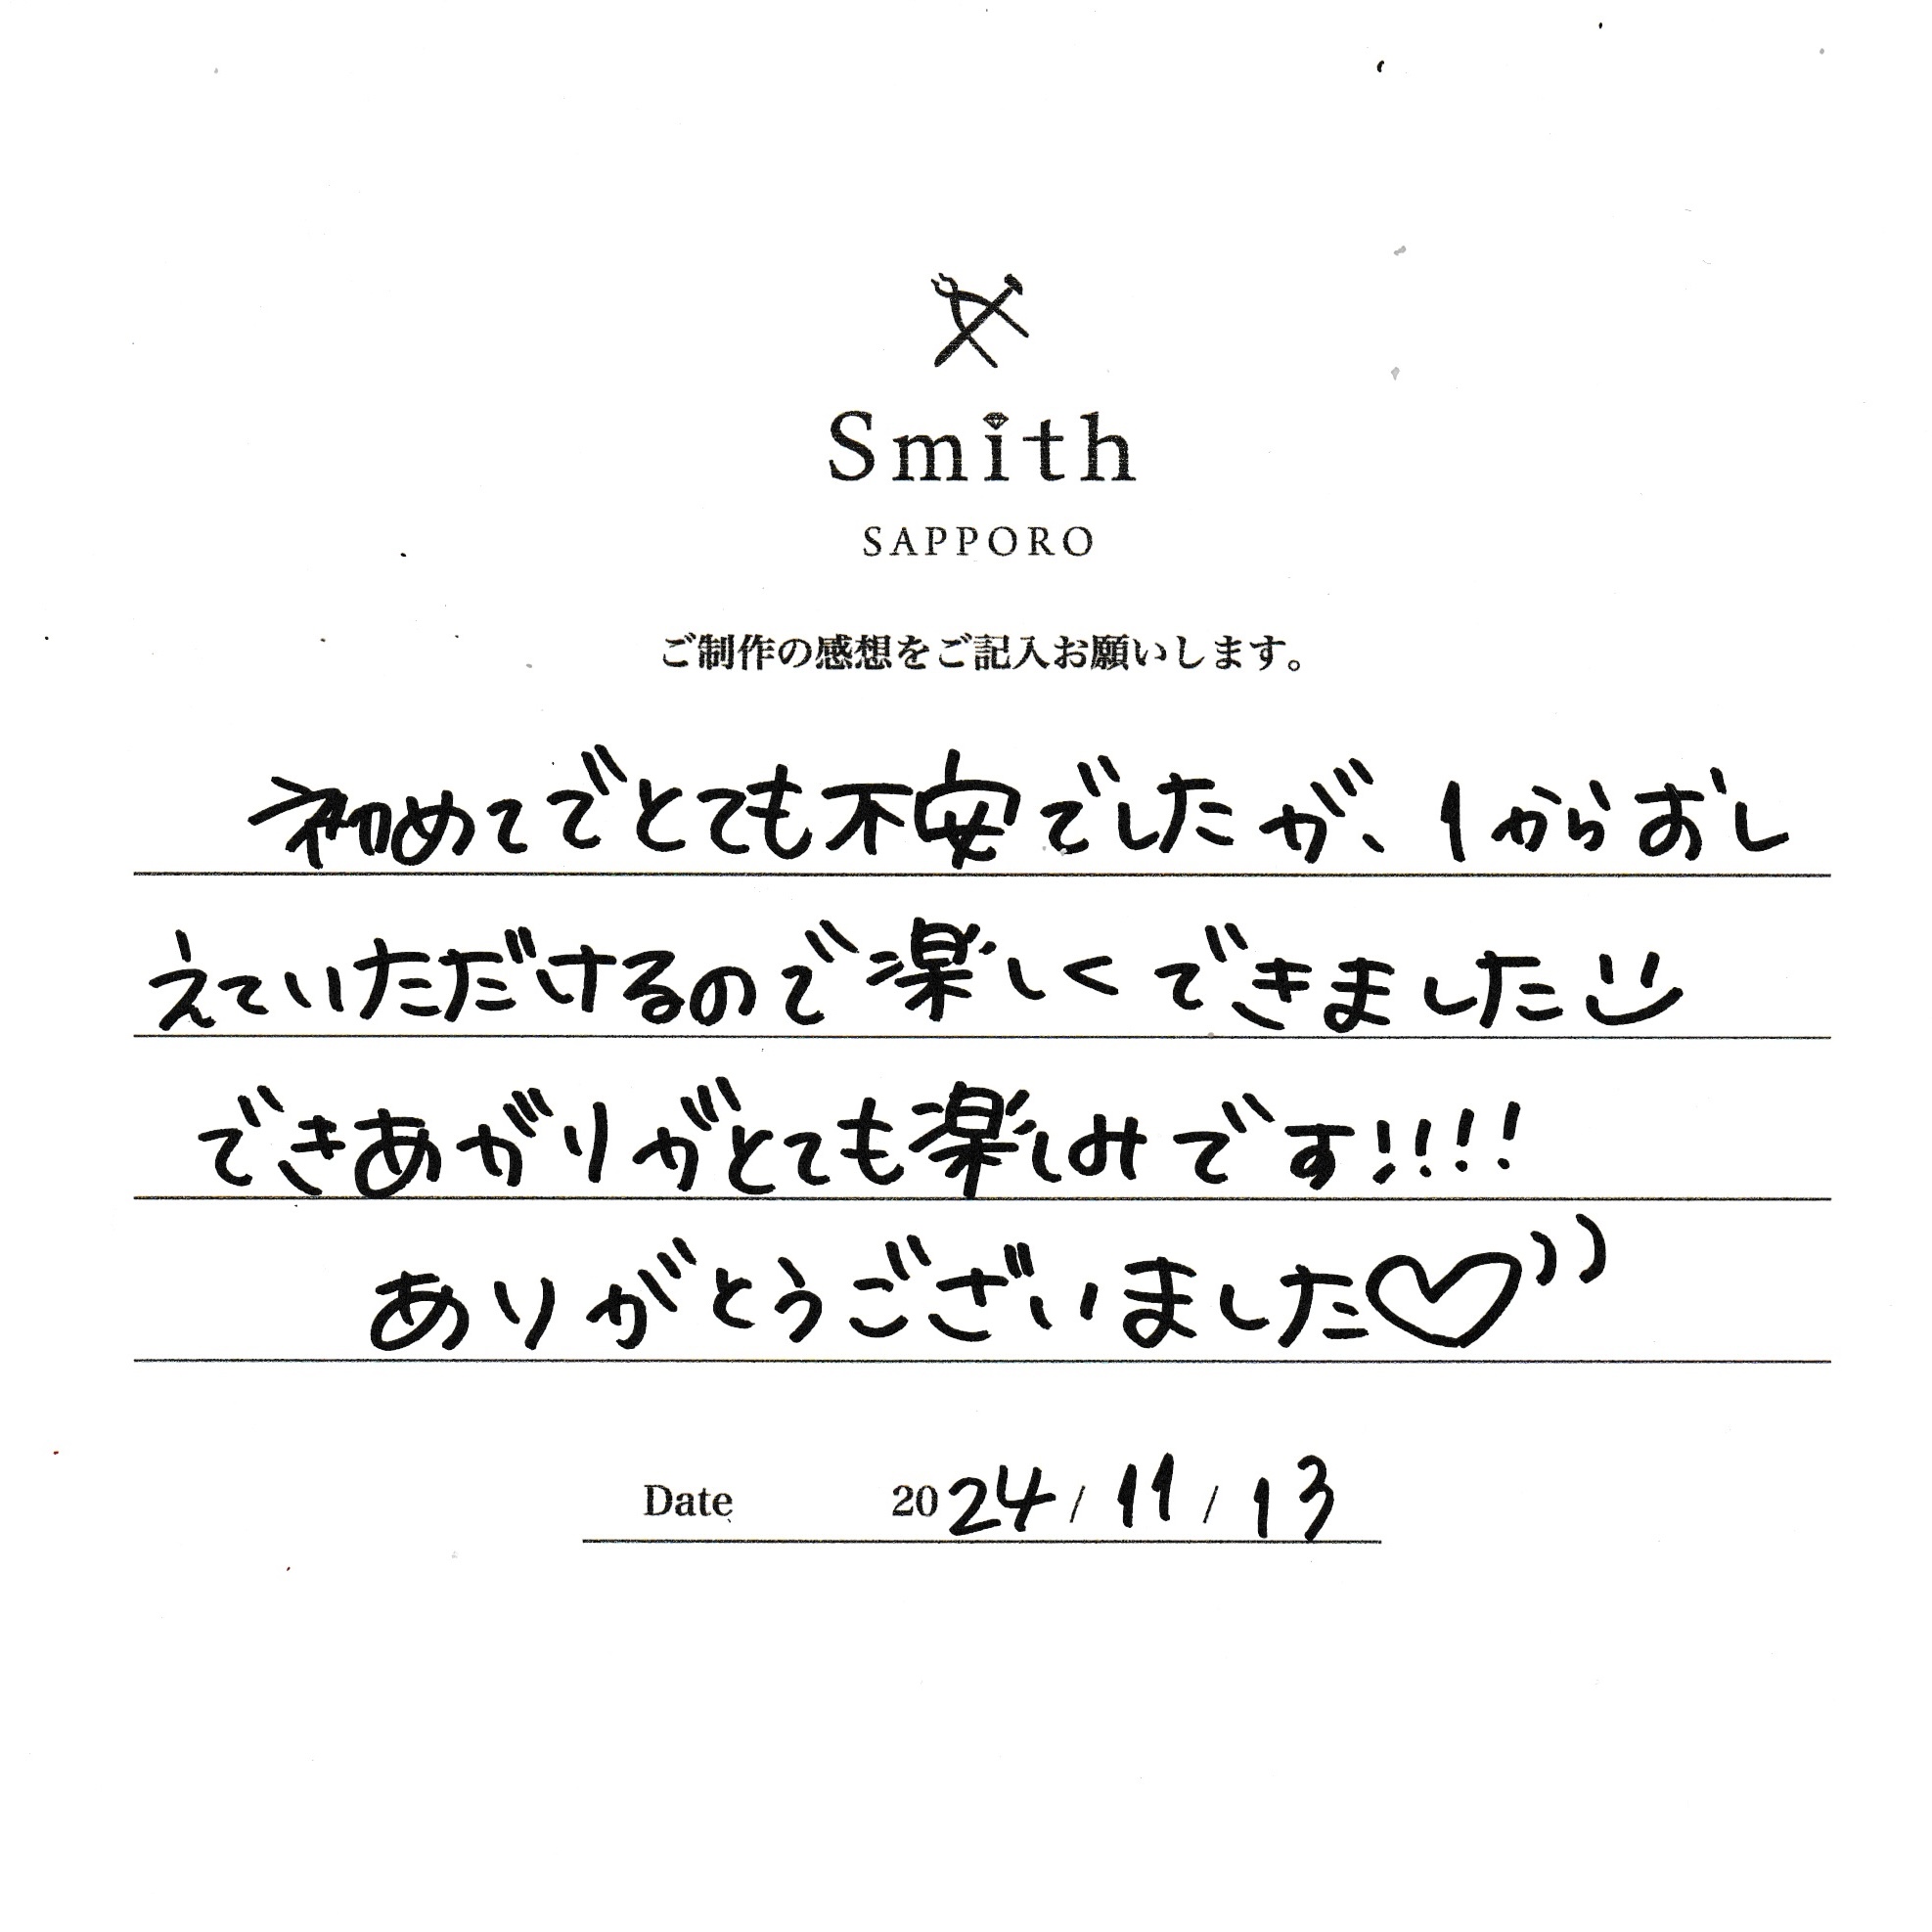 Smith
SAPPORO
ご制作の感想をご記入お願いします。
初めてでとても不安でしたが、1からおし
えていただけるので楽しくできました
できあがりがとても楽しみです!!!!
ありがとうございました♡
Date 2024/11/13